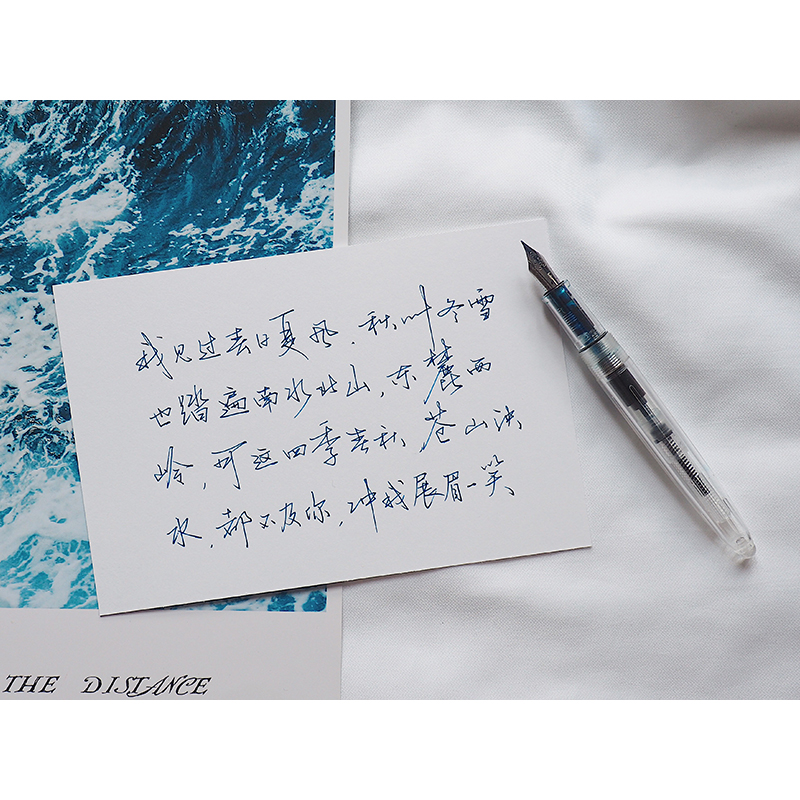 我见过春日夏风，秋叶冬雪
也踏遍南水北山，东麓西
岭，可这四季春秋，苍山泱
水，都不及你，冲我展眉一笑、
THE DISTANCE